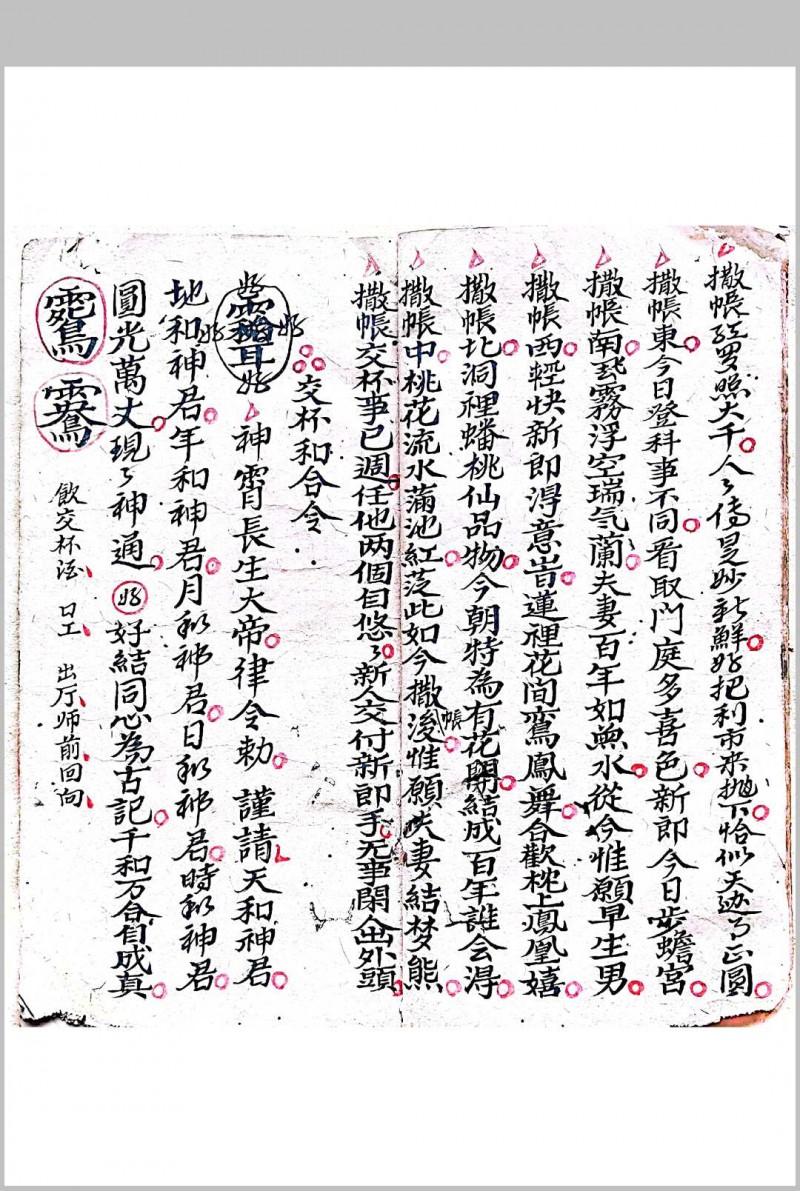 撒帳紅罗照大千人〻傳是妙新鮮好把利市来抛下恰似天边月正圓
撒帳東今日登科事不同看取門庭多喜色新郎今日步蟾宮
撒帳南霧浮空瑞気蘭夫妻百年如魚水從今惟願早生男
撒帳西輕快新郎淂意峕蓮裡花间鸞鳳舞合歡枕上鳳凰嬉
撒帳北洞裡蟠桃仙品物今朝特為有花開結成百年誰会淂
撒帳中桃花流水蒲池紅莈此如今撒帳後惟願夫妻結梦熊
撒帳交杯事已週任他两個自悠〻新人交付新郎手无事閑人出外頭
交杯和合令
好 好 好 好 神霄長生大帝律令勅 謹請天和神君
地和神君年和神君月和神君日和神君時和神君
圓光萬丈現〻神通 好 好結同心為古記千和万合自成真
飲交杯酒 口工 出厅师前回向